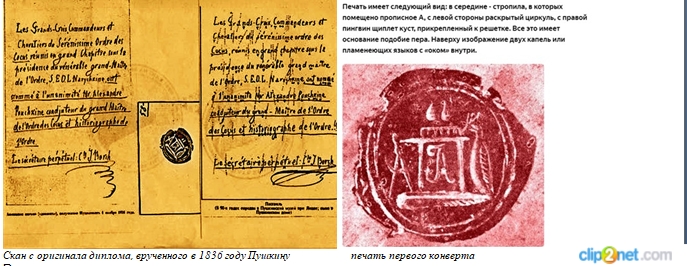 Les Grands-Croix, Commandeurs et
Chevaliers du Sérénissime Ordre des
Cocus réunis en grand Chapitre sous la
présidence du vénérable grand-Maître
de l'Ordre, S.E.D.L. Narychkine, ont
nommé à l'unanimité Mr. Alexandre
Pouchkine coadjuteur du grand Maître
de l'Ordre des Cocus et historiographe de
l'Ordre.
Le sécrétaire perpétuel: C-te J. Borch
Les Grands-Croix, Commandeurs et
Chevaliers du Sérénissime ordre des
Cocus, réunis en grand chapitre sous la
présidence du vénérable grand maître
de l'Ordre, S.E.D.L. Narychkine, ont nommé
à l'unanimité Mr Alexandre Pouchkine
coadjuteur du grand-Maître de l'Ordre
des Cocus et historiographe de l'Ordre.
Le sécrétaire perpétuel: C-te J. Borch
Печать имеет следующий вид: в середине - стропила, в которых
помещено прописное А, с левой стороны раскрытый циркуль, с правой
пингвин щиплет куст, прикрепленный к решетке. Все это имеет
основание подобие пера. Наверху изображение двух капель или
пламенеющих языков с «оком» внутри.
Скан с оригинала диплома, врученного в 1836 году Пушкину
печать первого конверта
clip2net.com